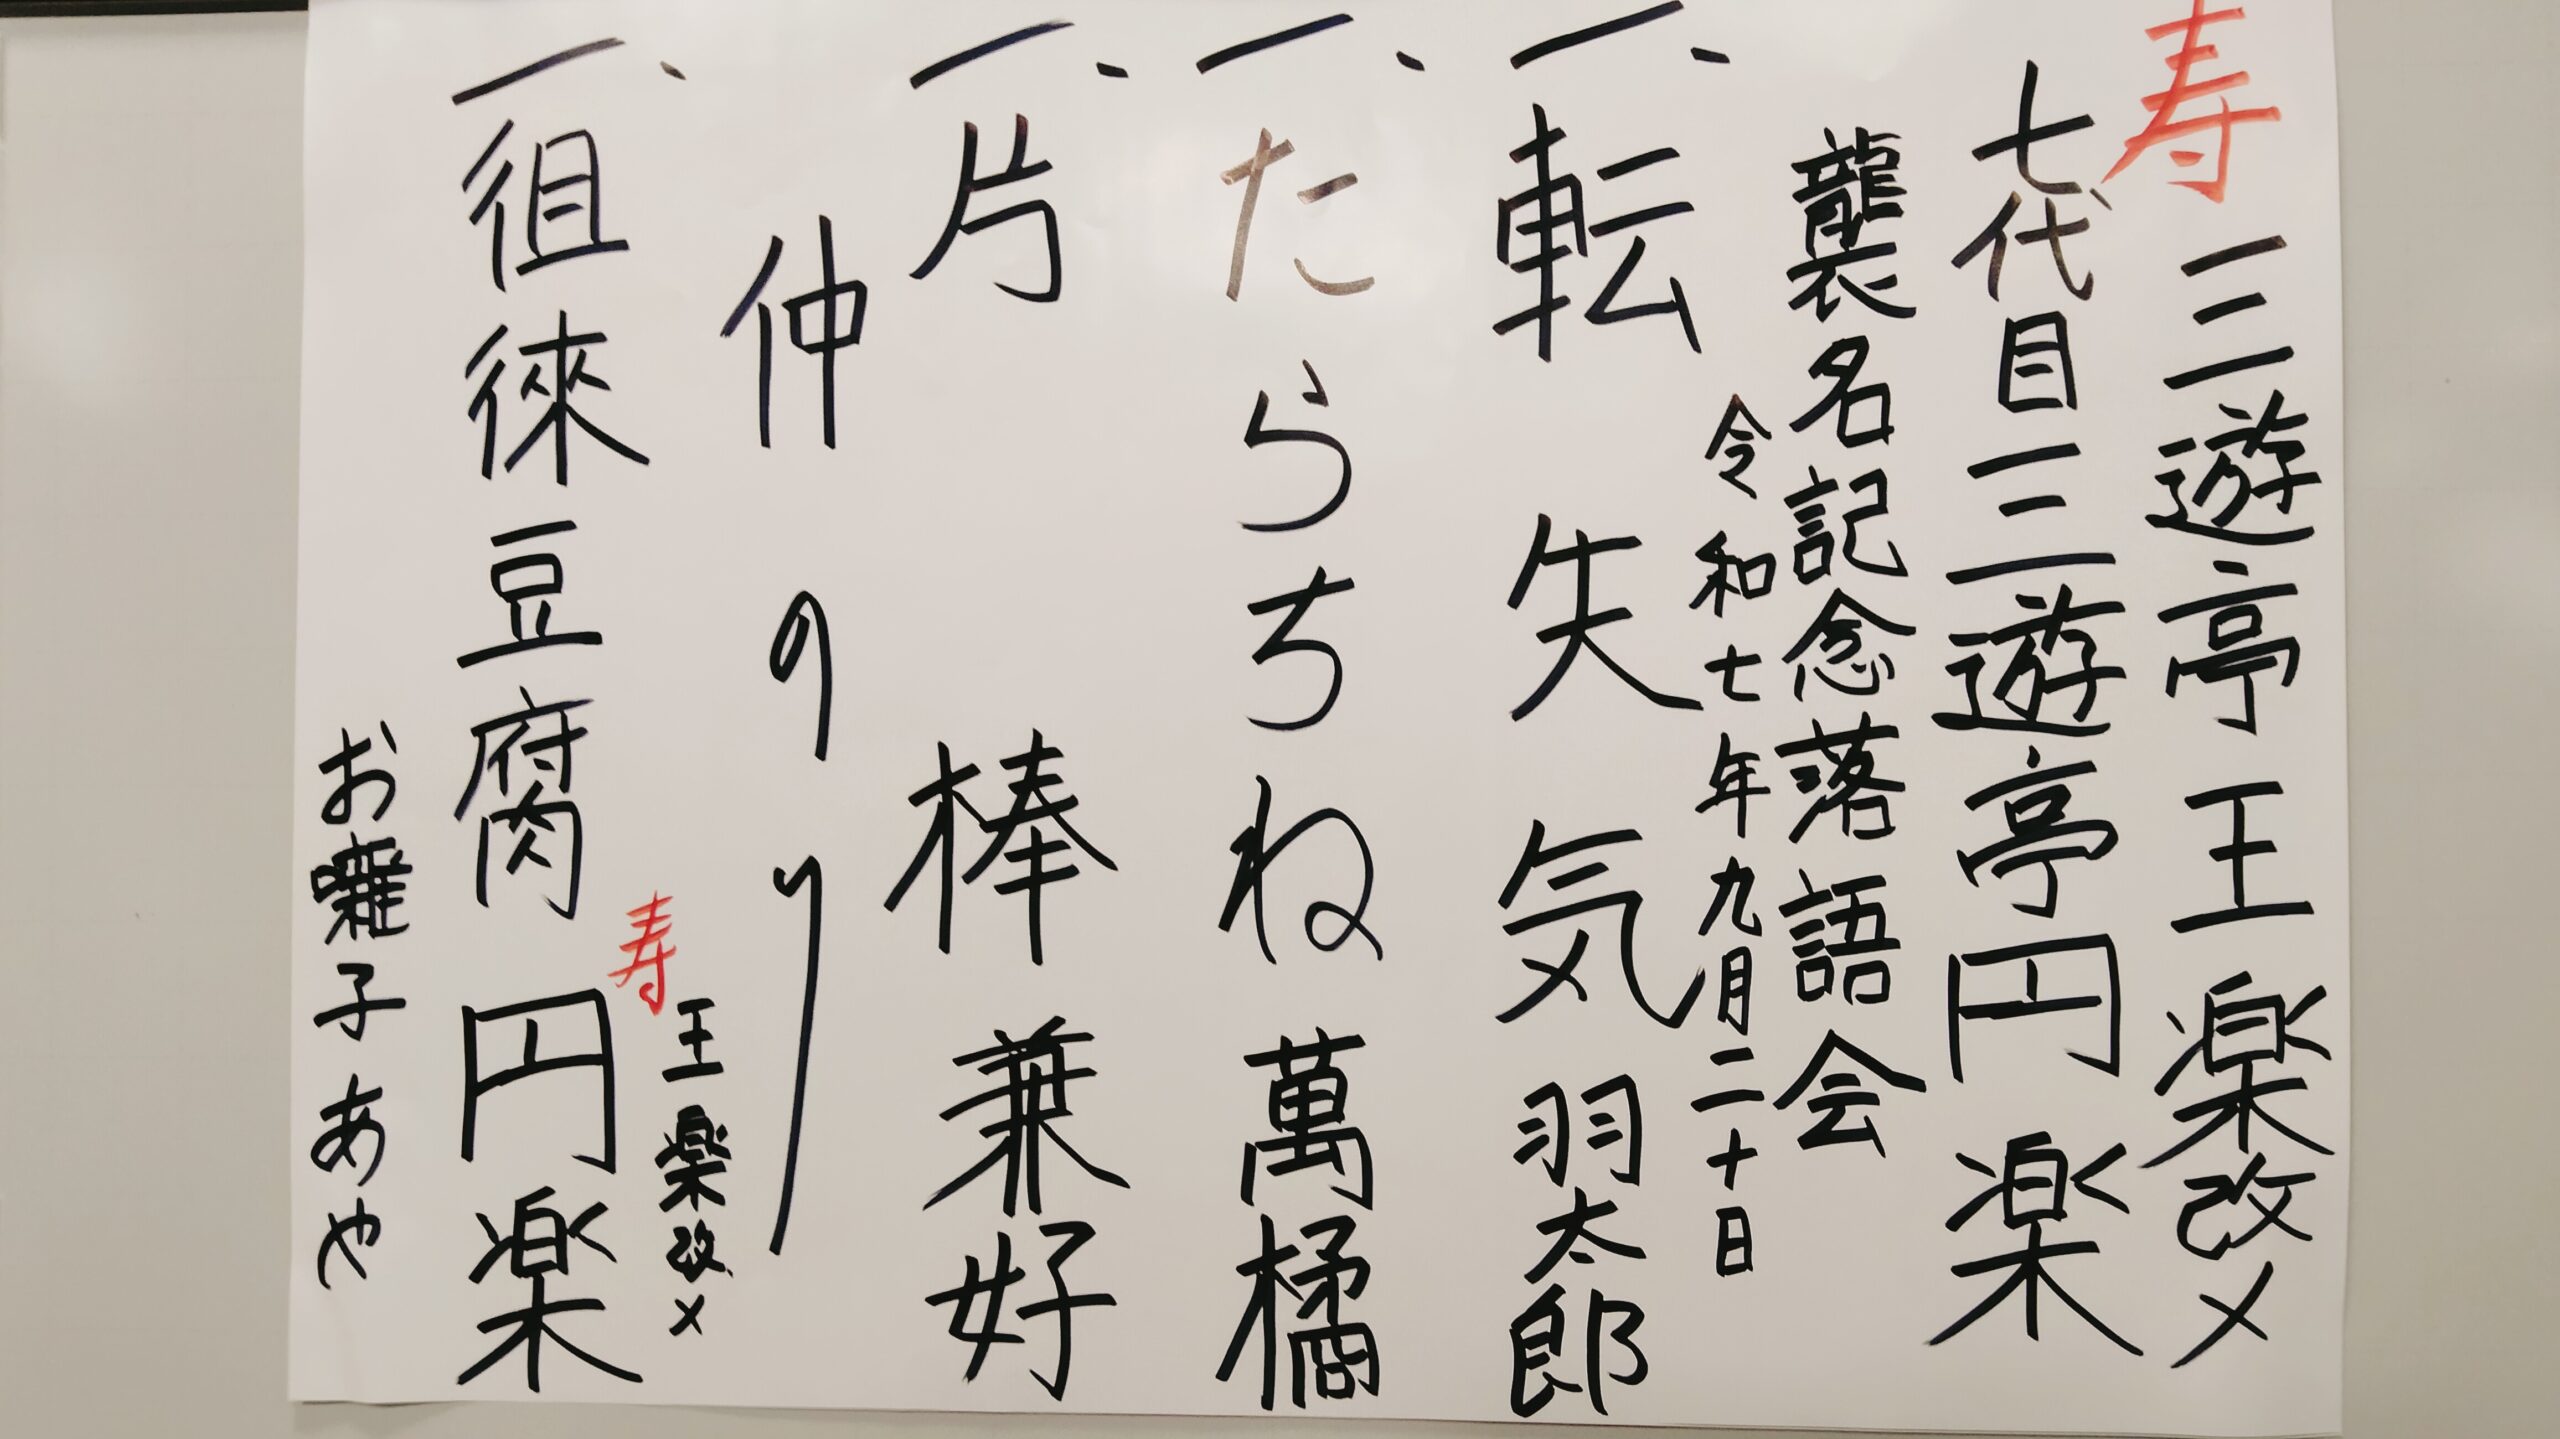 寿 三遊亭王楽改メ
七代目三遊亭円楽
襲名記念落語会
令和七年九月二十日
一、転失気 羽太郎
一、たらちね 萬橘
一、片棒 兼好
仲のり
一、徂徠豆腐 寿 王楽改メ 円楽
お囃子 あや